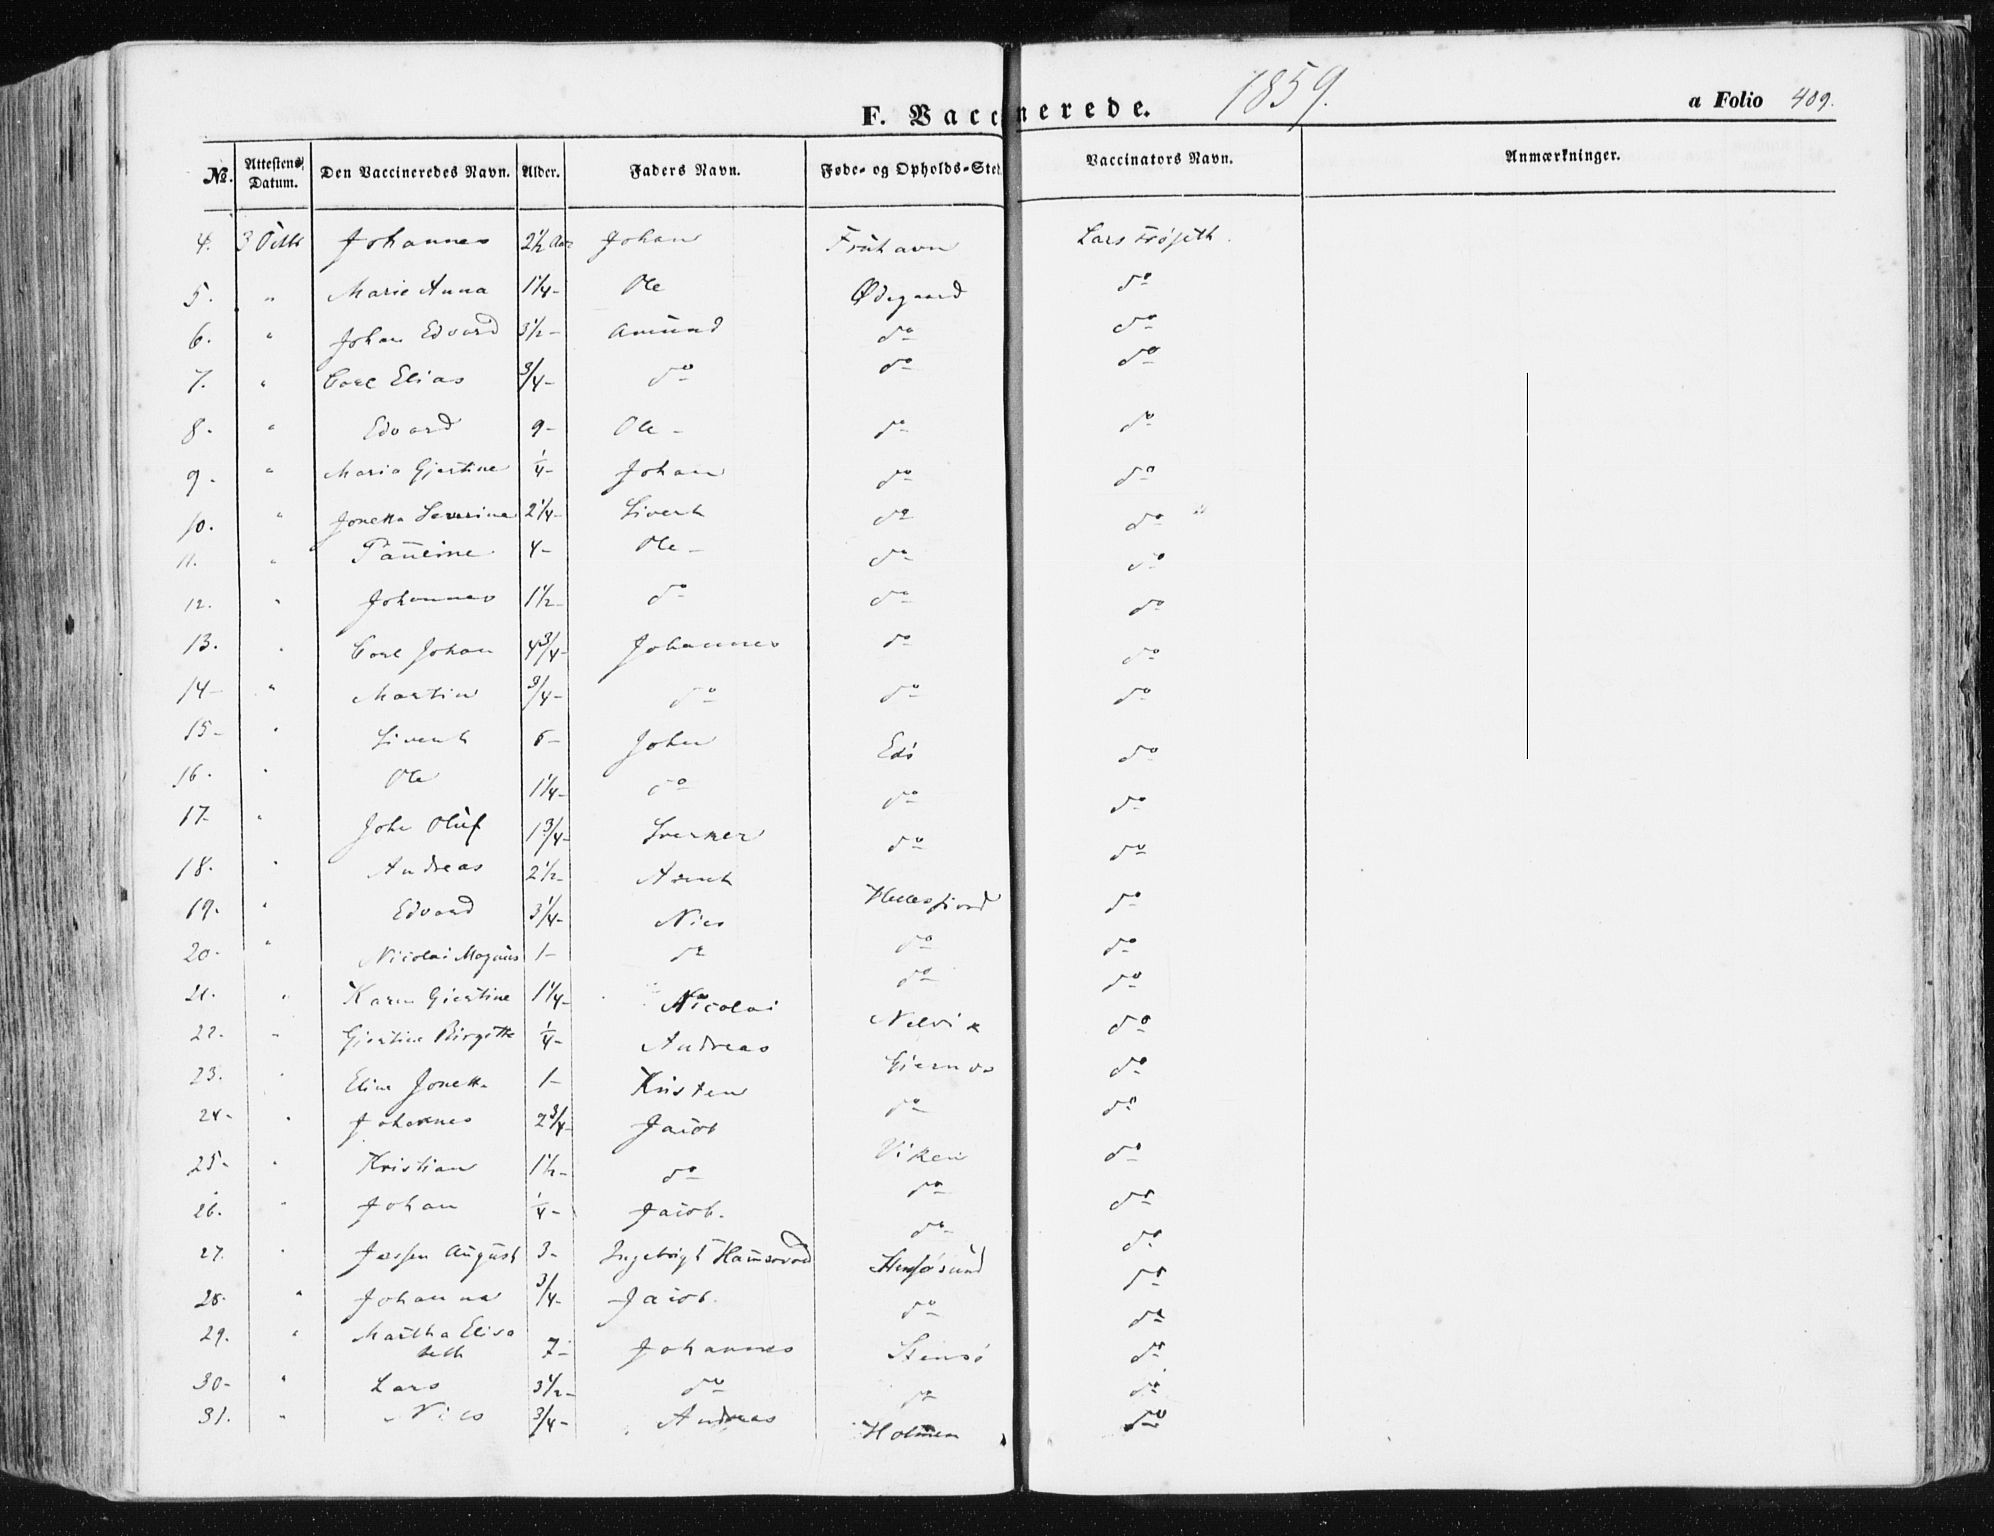 F. Vaccinerede. 1859. a Folio 409.
No. Attestens Datum. Den Vaccineredes Navn. Alder. Faders Navn. Føde- og Opholds-Sted. Vaccinators Navn. Anmærkninger.
4. 3 Octb Johannes 2½ Aar Johan Lars Frøseth.
5. " Marie Anna 1¼- Ole Ødegaard do
6. " Johan Edvard 3½- Amund do do
7. " Carl Elias ¾- do do do
8. " Edvard 9- Ole- do do
9. " Maria Gjertine ¼- Johan do do
10. " Jonetta Severine 2¼- Sivert do do
11. " Pauline 4- Ole- do do
12. " Johannes 1½- do do do
13. " Carl Johan 4¾- Johannes do do
14- " Martin ¾- do do do
15- " Sivert 6- John Edø do
16. " Ole 1¼- do do do
17. " John Oluf 1¾- Sverker do do
18. " Andreas 2½- Arent do
19. " Edvard 3¼- Nils Hellesfiord do
20- " Nicolai Magnus 1- do do do
21. " Karen Giertine 1¼- Nicolai do do
22. " Gjertine Birgitte ¼- Andreas Nelvik do
23. " Eline Jonetta 1- Kristen Giernes do
24- " Johannes 2¾- Jacob do do
25- " Kristian 1½- do Viken do
26. " Johan ¼- Jacob. do do
27. " August 3- Ingebrigt do do
28. " Johanna ¾- Jacob. do do
29. " Martha Elisa
beth 7- Johannes Stensø do
30- " Lars 3½- do do do
31. " Nils ¾- Andreas Holmen do